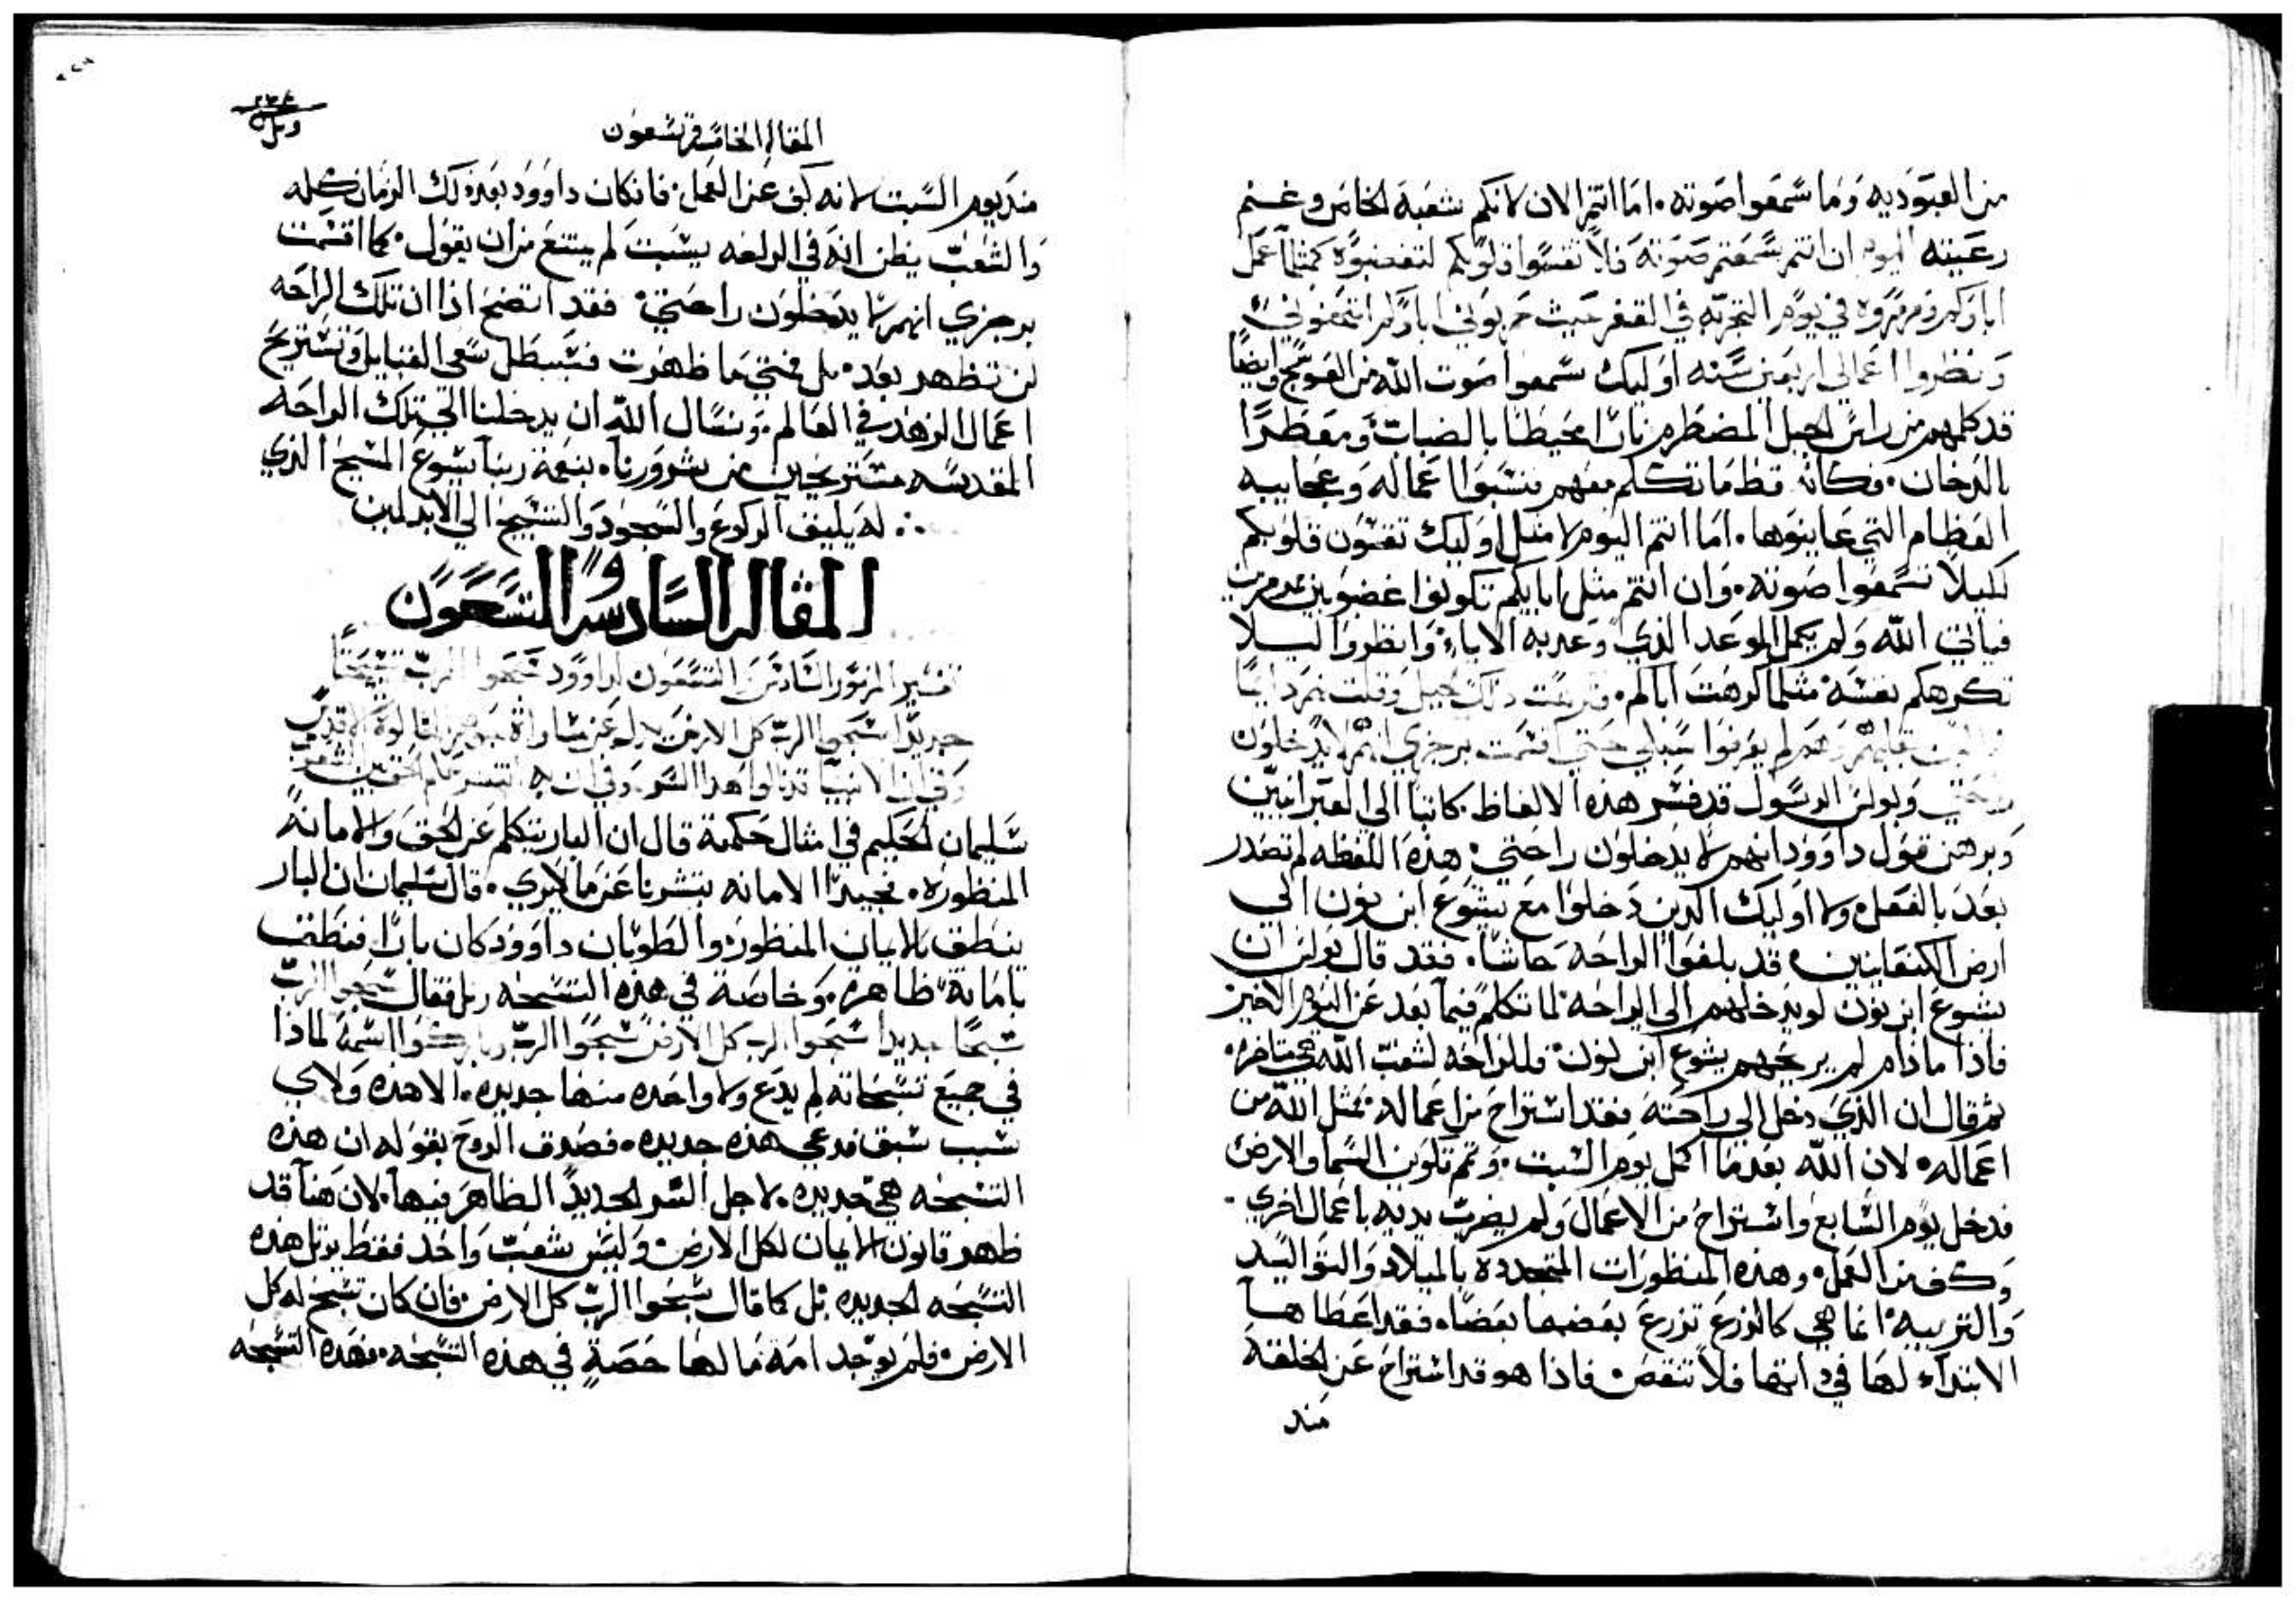 من العبوديه وما سمعوا صوته. اما انتم الان لانكم شعبة الخاص وغنم
رعيته اليوم ان انتم سمعتم صوته فلا تقسوا قلوبكم لتغضبوه كمثلما عمل
اباوكم ومرمروه في يوم التجربه في القفر حيث جربوني اباوكم امتحنوني
ونظروا اعمالي اربعين سنه اوليك سمعوا صوت الله من العوسج وايضا
قد كلمهم من راس الجبل المضطرم نارا محيطا بالضباب ومقطرا
بالدخان. فكانه قط ما تكلم معهم فنسيوا اعماله وعجايبه
العظام التي عاينوها. اما انتم اليوم لا مثل اوليك تقسون قلوبكم
لكيلا تسمعوا صوته. وان انتم مثل ابايكم تكونوا غضوبين
فياتي الله ولم يكمل الموعد الذي وعد به الاباء. وانظروا ليلا
تكرهكم نفسه مثلما كرهت اباكم. ذلك الجيل وقلت نهم دايما
قلبهم وهم لم يعرفوا سبلي حتي اقسمت برجزي انهم لا يدخلون
راحتي وبولس الرسول قد فسر هذه الالفاظ. كاتبا الي العبرانيين
وبرهن بقول داوود انهم لا يدخلون راحتي. هذه اللفظه لم تصدر
بعد بالفعل ولا اوليك الذين دخلوا مع يشوع ابن نون الي
ارض الكنعانيين قد بلغوا الراحه حاشا. فقد قال بولس ان
يشوع ابن نون لو يدخلهم الي الراحه لما تكلم فيما بعد عن اليوم الاخير
فاذا ما دام لم يريحهم يشوع ابن نون فللراحه لشعب الله هي متاخره
ثم قال ان الذي دخل الي راحته فقد استراح من اعماله. كمثل الله من
اعماله لان الله بعدما اكمل يوم السبت. وتم تكوين السما والارض
فدخل يوم السابع واستراح من الاعمال ولم يضرب يديه باعمال اخري
وكف من العمل وهذه المنظورات المتجددة بالميلاد والتواليد
والتربيه انما هي كالزرع تزرع بعضها بعضا. فقد اعطاها
الابتداء لها في ذاتها فلا تنقص. فاذا هو قد استراح عن الخلقة
منذ
المقاله الخامسة وتسعون
منذ يوم السبت لانه كف عن العمل. فان كان داوود بعد ذلك الزمان كله
والشعب يظن انه في الراحه يسبت لم يمتنع من ان يقول. كما اقسمت
برجزي انهم لا يدخلون راحتي. فقد اتضح اذا ان تلك الراحه
لن تظهر بعد. بل فمتي ما ظهرت فسيبطل سعي القبايل وتستريح
اعمال الزهد في العالم. ونسال الله ان يدخلنا الي تلك الراحه
المقدسه مستريحين من شرورنا. بنعمة ربنا يسوع المسيح الذي
له يليق الركوع والسجود والتسبيح الي الابد امين
المقاله السادسه والتسعون
تفسير المزمور السادس والتسعون لداوود سبحوا الرب تسبيحا
جديدا سبحوا الرب كل الارض
سليمان الحكيم في امثال حكمته قال ان البار يتكلم عن الحق والامانة
المنظوره. فجيدا الامانه بتشرنا عن ما لا يري. قال سليمان ان البار
ينطق بالايمان المنظور والطوبان داوود كان بارا فينطق
بامانة ظاهرة. وخاصة في هذه التسبحه رتل فقال سبحوا الرب
تسبيحا جديدا سبحوا الرب كل الارض سبحوا الرب وباركوا اسمه لماذا
في جميع تسبحاته لم يدع ولا واحده منها جديده. الا هذه ولاي
سبب سبق فدعي هذه جديده. فصدق الروح بقوله ان هذه
التسبحه هي جديده. لاجل السر الجديد الظاهر فيها. لان هنا قد
ظهر قانون الايمان لكل الارض. وليس شعب واحد فقط يرتل هذه
التسبحه الجديده بل كما قال سبحوا الرب كل الارض. فان كان تسبح له كل
الارض. فلم يوجد امة ما لها حصة في هذه التسبحه. فهذه التسبحه